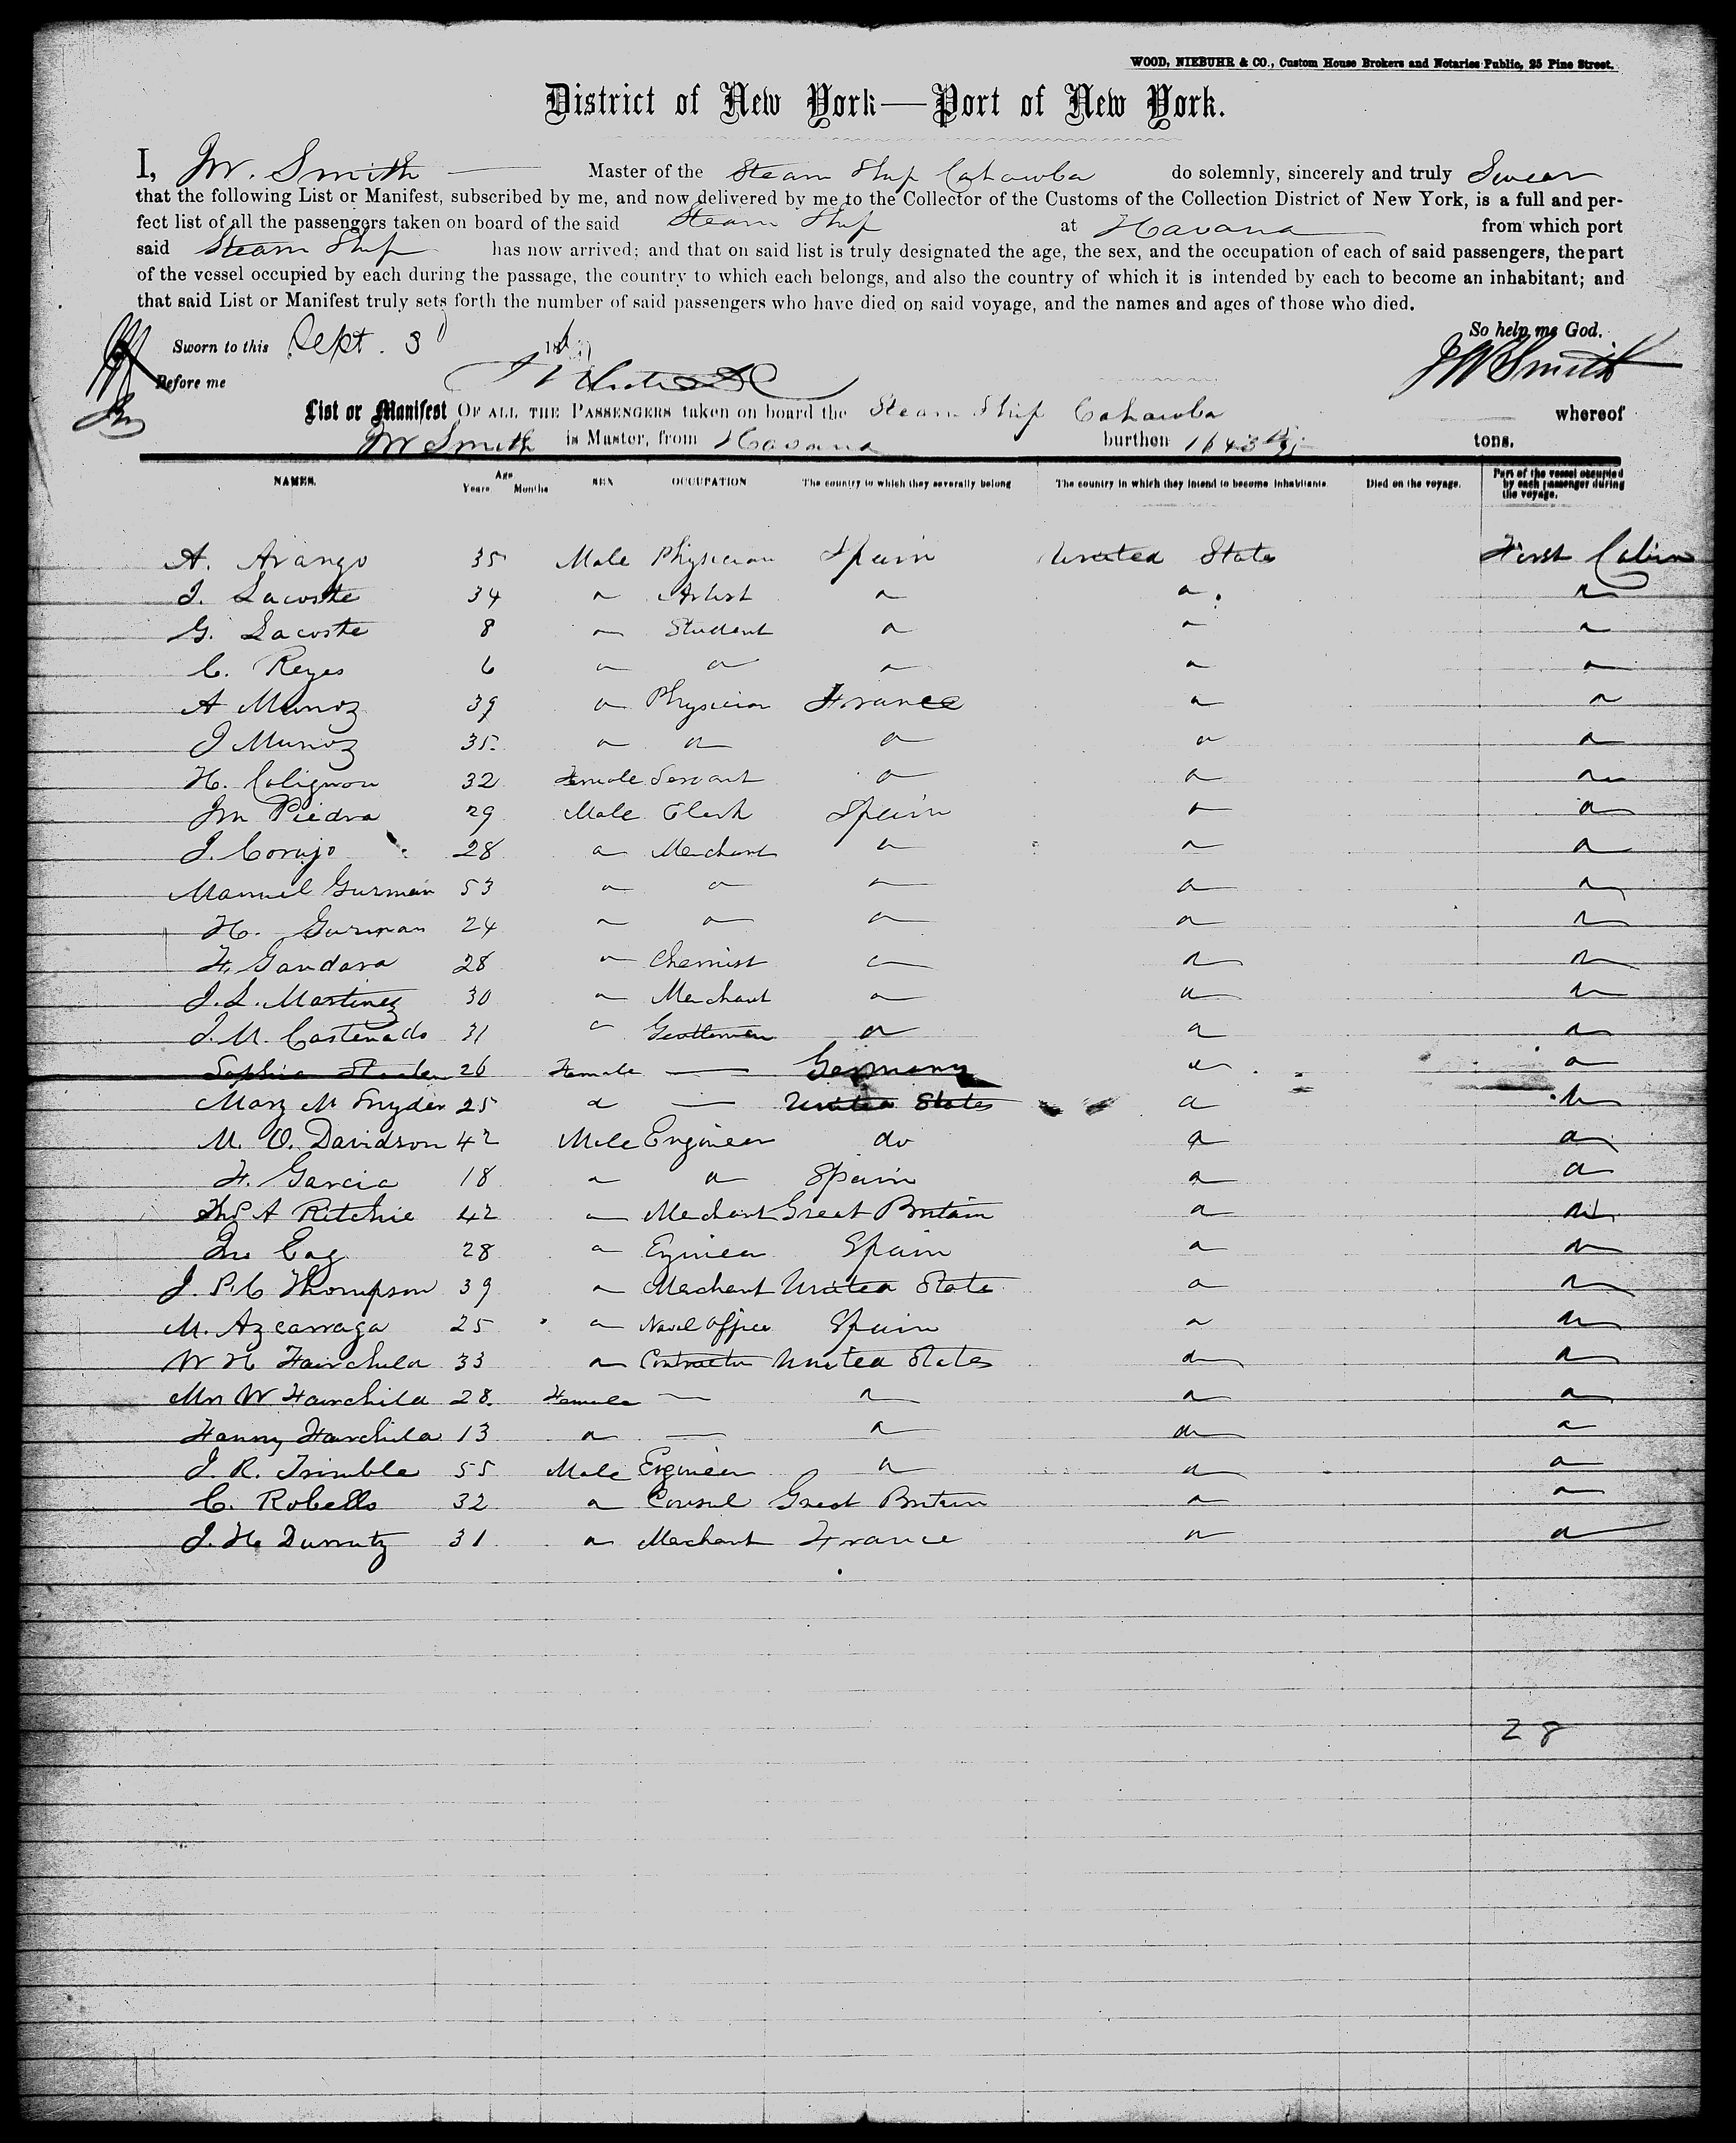 WOOD, NIEBUHR & CO., Custom House Brokers and Notaries Public, 25 Pine Street.
District of New York—Port of New York.
I, JW. Smith Master of the Steam Ship Cahawba do solemnly, sincerely and truly Swear
that the following List or Manifest, subscribed by me, and now delivered by me to the Collector of the Customs of the Collection District of New York, is a full and per-
fect list of all the passengers taken on board of the said Steam Ship at Havana from which port
said Steam Ship has now arrived; and that on said list is truly designated the age, the sex, and the occupation of each of said passengers, the part
of the vessel occupied by each during the passage, the country to which each belongs, and also the country of which it is intended by each to become an inhabitant; and
that said List or Manifest truly sets forth the number of said passengers who have died on said voyage, and the names and ages of those who died.
So help me God.
Sworn to this Sept. 3 18
JW Smith
Before me
List or Manifest OF ALL THE PASSENGERS taken on board the Steam Ship Cahawba whereof
JW Smith is Master, from Havana burthen 1643 tons.
NAMES. Age Years Months SEX OCCUPATION The country to which they severally belong The country in which they intend to become inhabitants. Died on the voyage. Part of the vessel occupied by each passenger during the voyage.
A. Arango 35 Male Physician Spain United State First Cabin
J. Lacoste 34 " Artist " " "
G. Lacoste 8 " Student " " "
C. Reyes 6 " " " " "
A Munoz 39 " Physician France " "
J Munoz 35 " " " " "
H. Colignon 32 Female Servant " " "
Jn Piedra 29 Male Clerk Spain " "
J. Corujo 28 " Merchant " " "
Manuel Gusman 53 " " " " "
H. Gusman 24 " " " " "
F. Gandara 28 " Chemist " " "
J. L. Martinez 30 " Merchant " " "
J. M. Castenado 31 " Gentleman " " "
Sophia 26 Female — Germany " "
Mary M Snyder 25 " — United States " "
M. O. Davidson 42 Male Engineer do " "
F. Garcia 18 " " Spain " "
Ths A Ritchie 42 " Merchant Great Britain " "
28 " Engineer Spain " "
J. P. C Thompson 39 " Merchant United State " "
M. Azcarraga 25 " Naval Office Spain " "
W H Fairchild 33 " Contractor United States " "
Mrs W Fairchild 28. Female — " " "
Fanny Fairchild 13 " — " " "
J. R. Trimble 55 Male Engineer " " "
C. Robells 32 " Consul Great Britain " "
J. H. Durruty 31 " Merchant France " "
28